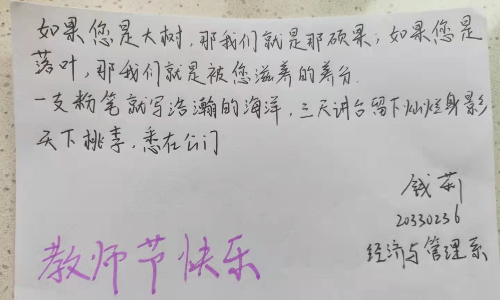 如果您是大树,那我们就是那硕果;如果您是
落叶,那我们就是被您滋养的养分.
一支粉笔就写浩瀚的海洋,三尺讲台留下灿烂身影
天下桃李,悉在公门
钱莉
20330236
经济与管理系
教师节快乐